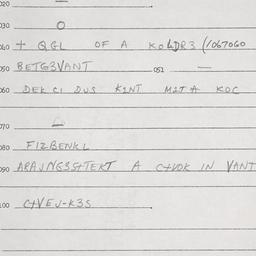 020
030 O
040 + QGL OF A KOLDR3 (1067060
050 BETG3VANT 051 —
060 DEK CI DUS KINT M2T A KOC
070
080 FIZBENKL
090 ARAJNG3STTEKT A C+VOK IN VANT
100 C+VEJ-K3S